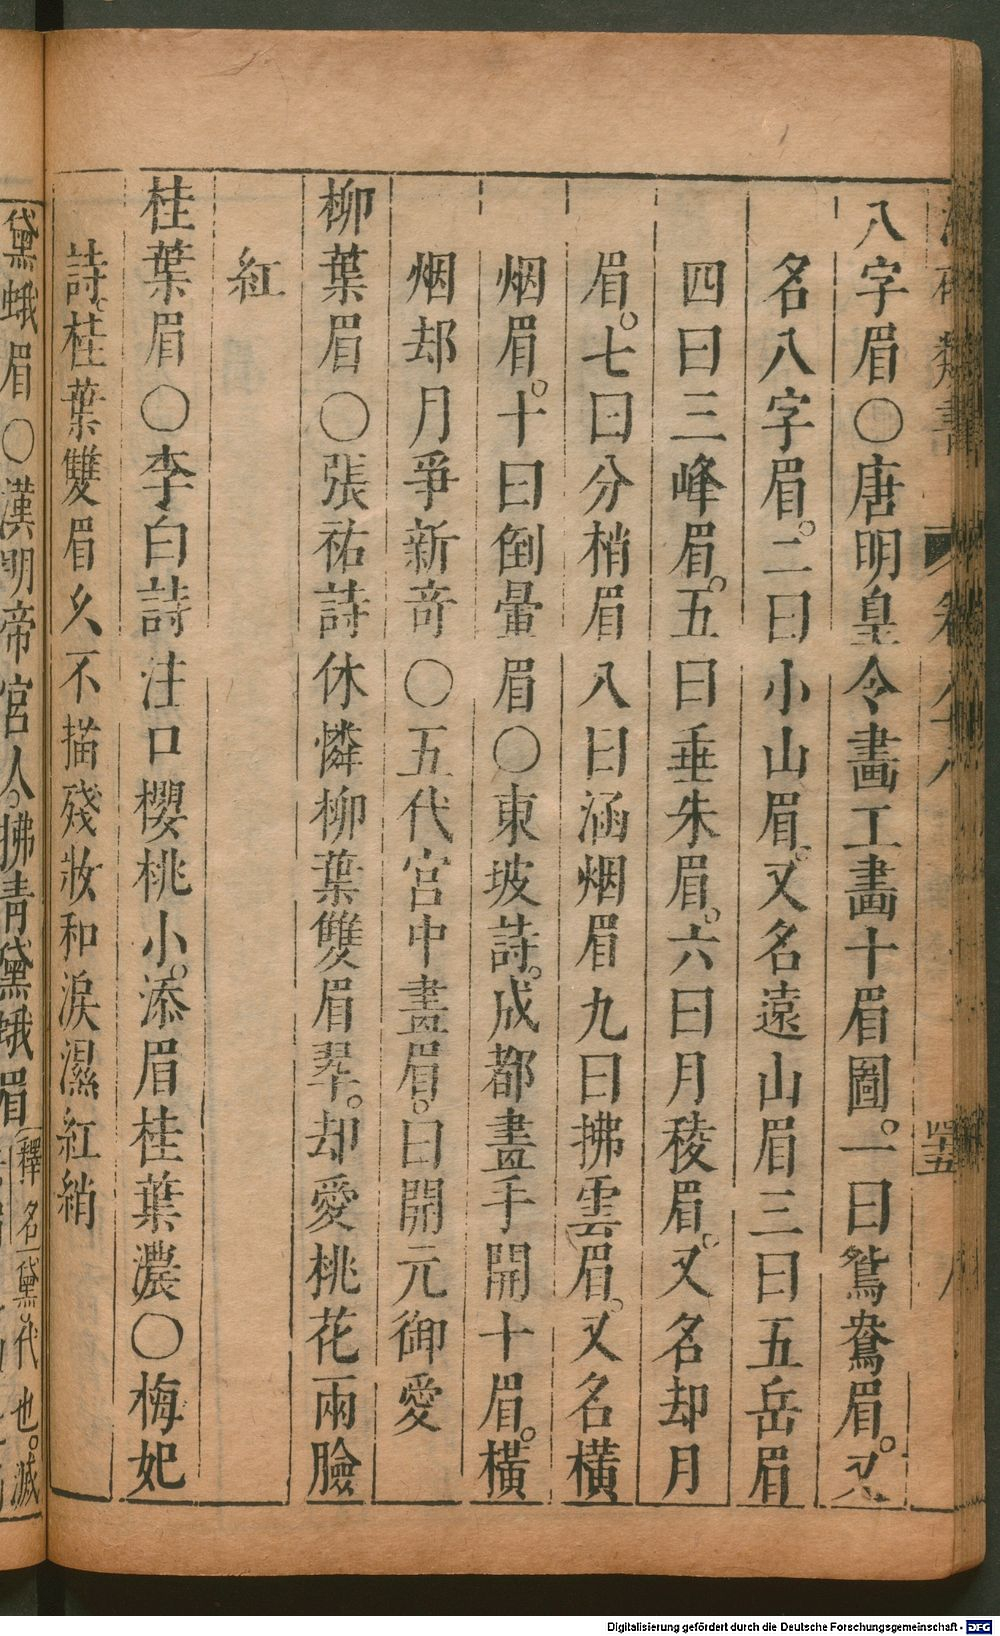 八字眉〇唐明皇令畵工畵十眉圖。一曰鴛鴦眉。又
名八字眉。二曰小山眉。又名遠山眉三曰五岳眉
四曰三峰眉。五曰垂朱眉。六曰月稜眉。又名却月
眉。七曰分梢眉八曰涵烟眉九曰拂雲眉。又名横
烟眉。十曰倒暈眉〇東坡詩。成都畵手開十眉。橫
烟却月爭新奇〇五代宮中畵眉。曰開元御愛
柳葉眉〇張祐詩休憐柳葉雙眉翠。却愛桃花兩臉
紅
桂葉眉〇李白詩注口櫻桃小。添眉桂葉濃〇梅妃
詩。桂葉雙眉久不描殘妝和淚濕紅綃
黛蛾眉〇漢明帝宮人。拂青黛蛾眉
釋名
黛。代也。滅
四十五
Digitalisierung gefördert durch die Deutsche Forschungsgemeinschaft - DFG